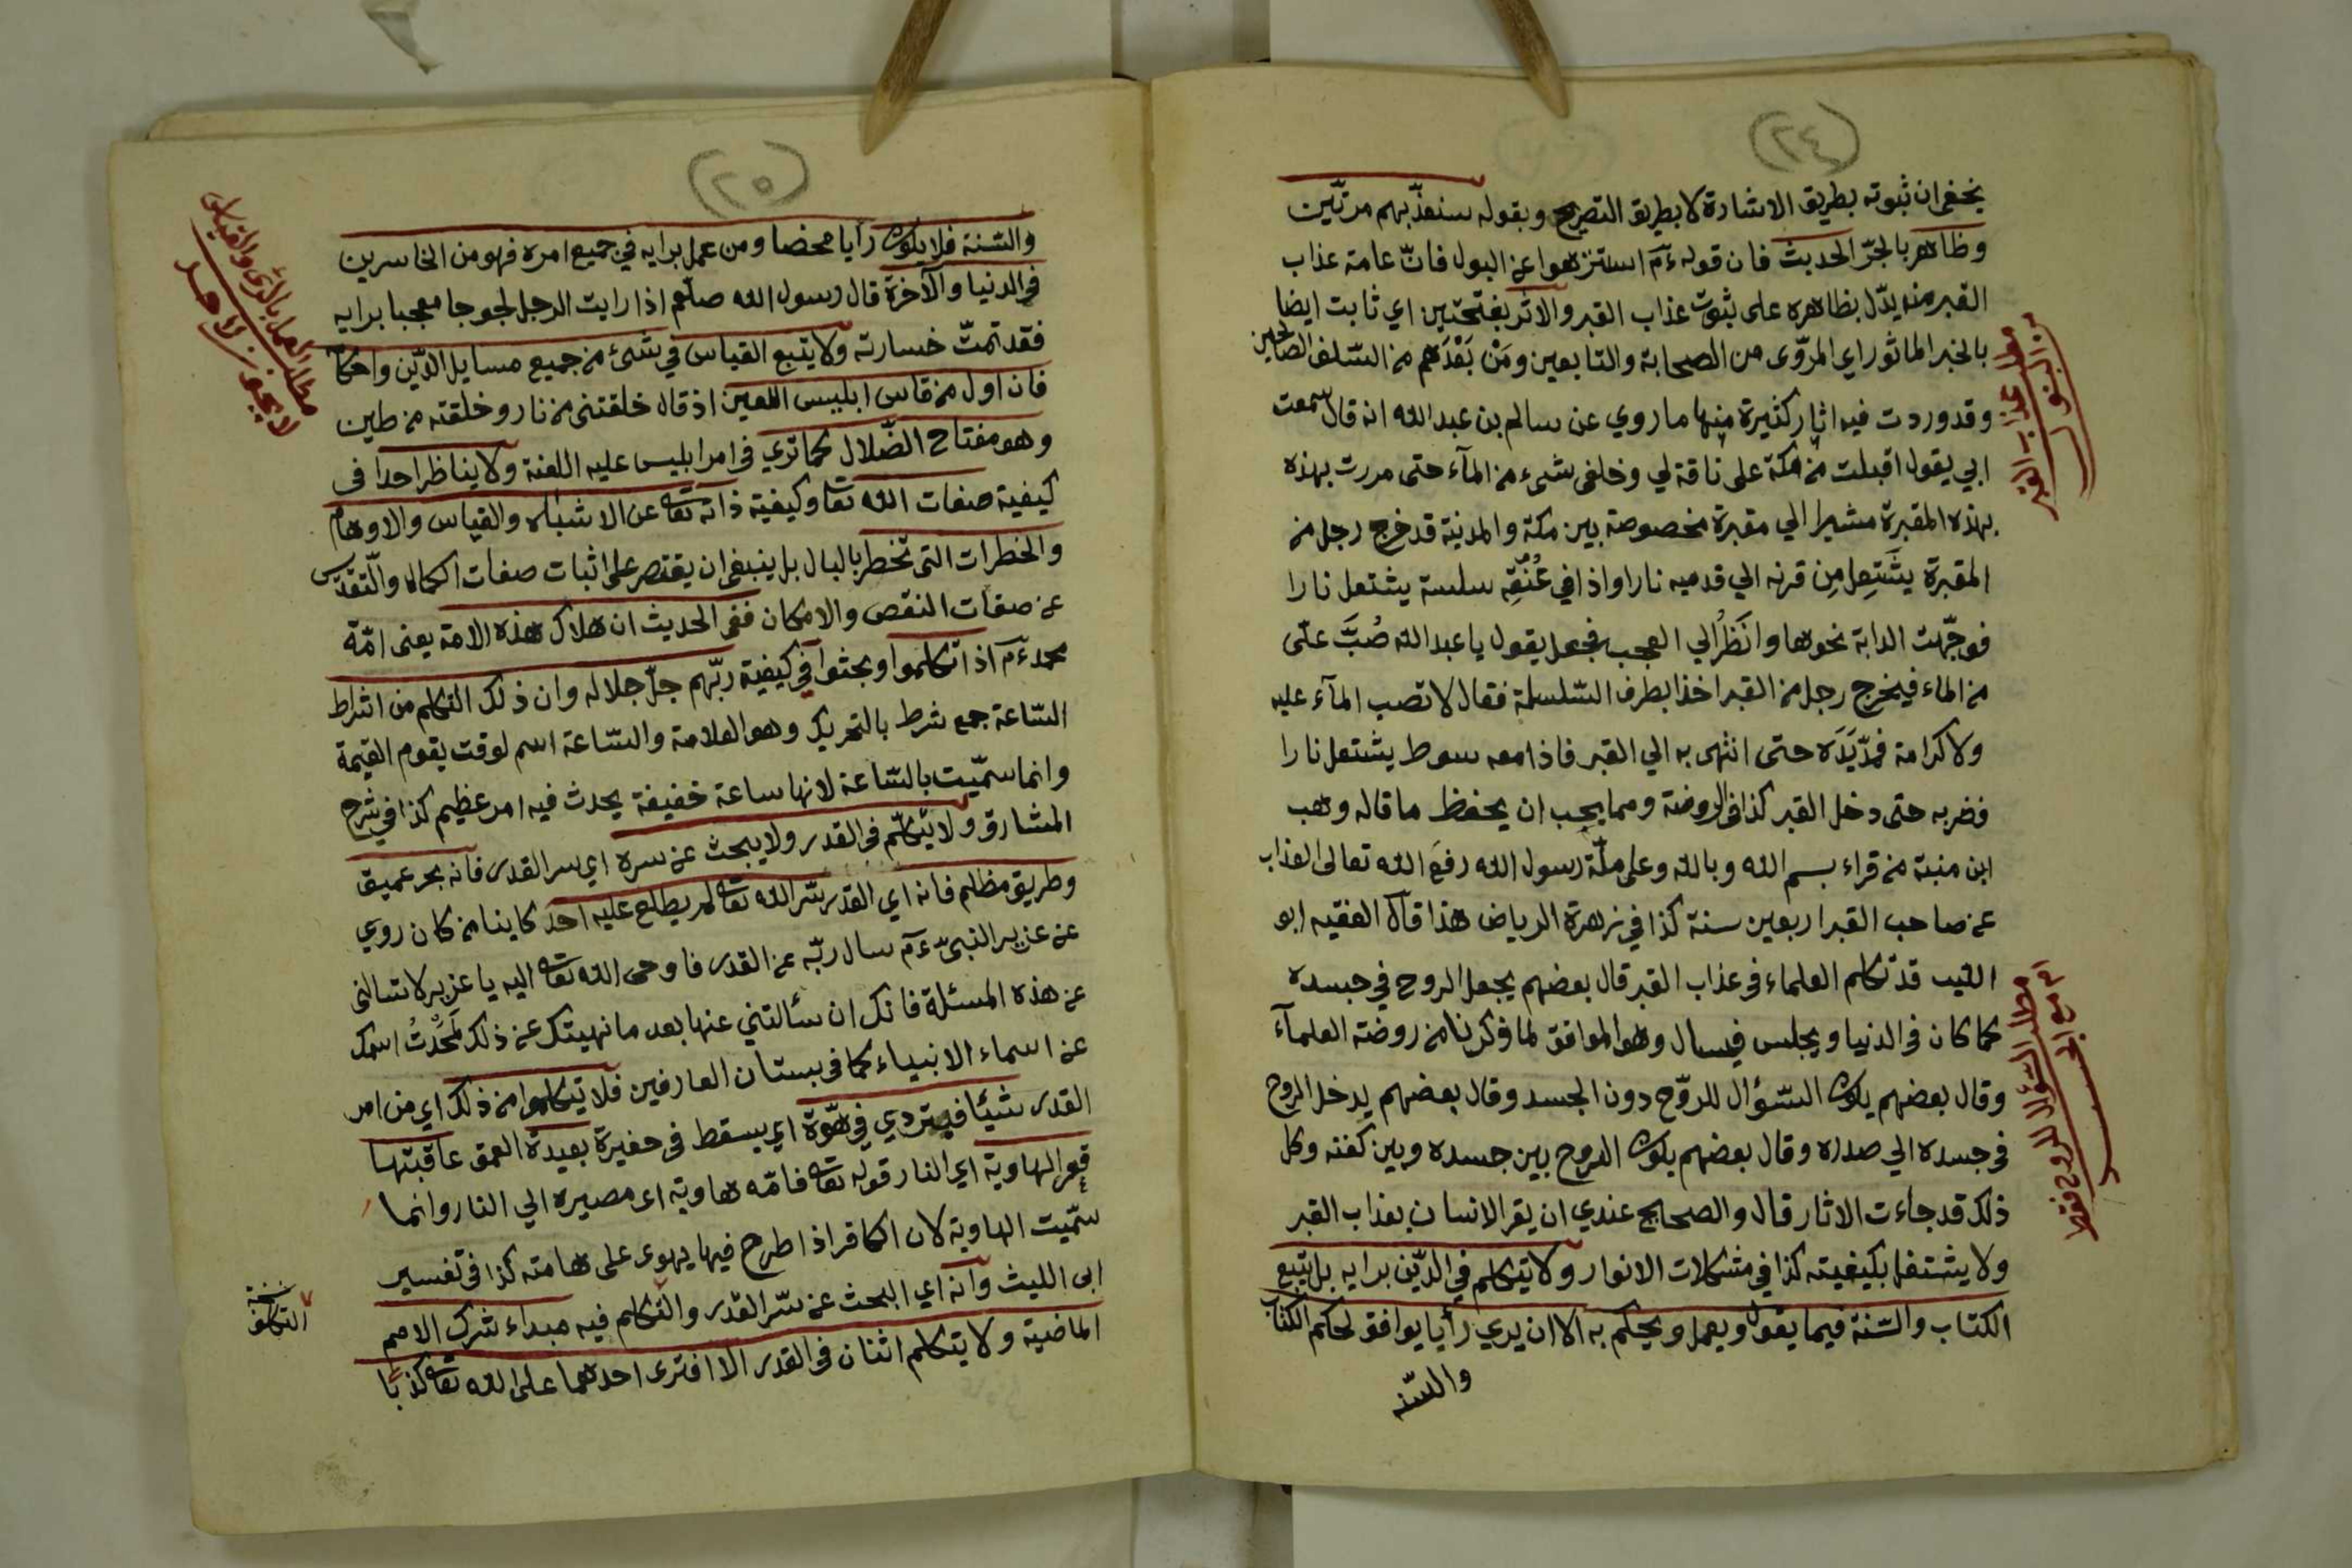 (٢٤)
يخفى ان ثبوته بطريق الاشارة لا بطريق التصريح وبقوله سنعذّبهم مرتّين
وظاهر بالجرّ الحديث فان قوله ءم استنزهوا عن البول فانّ عامة عذاب
القبر منه يدّل بظاهره على ثبوت عذاب القبر والاثر بفتحتين اي ثابت ايضا
بالخبر الماثور اي المروّى من الصحابة والتابعين ومَنْ بَعْدَهم من السّلف الصالحين
وقد وردت فيه اثار كثيرة منها ما روي عن سالم بن عبد الله انه قال سمعت
ابي يقول اقبلت من مكة على ناقة لي وخلفى شىء من المآء حتى مررت بهذه
بهذه المقبرة مشيرا الي مقبرة مخصوصة بين مكة والمدينة قد خرج رجل من
المقبرة يشَتَعِل مِن قرنه الي قدميه نارا واذا في عُنُقِه سلسة يشتعل نارا
فوجّهت الدابة نحوها وانَظرُ الي العجب فجعل يقول يا عبد الله صُبَّ علّى
من الماء فيخرج رجل من القبر اخذا بطرف السّلسلة فقال لا تصب المآء عليه
ولا كرامة فمدّ يَدَه حتى انتهى به الي القبر فاذا معه سوط يشتعل نارا
فضربه حتى دخل القبر كذا فى الروضة ومما يجب ان يحفظ ما قاله وهب
ابن منبة من قراء بسم الله وبالله وعلى ملّة رسول الله رفعَ الله تعالى العذاب
عن صاحب القبر اربعين سنة كذا في زهرة الرياض هذا قال الفقيه ابو
الليب قد تكلم العلماء فى عذاب القبر قال بعضهم يجعل الروح في جسده
كما كان فى الدنيا ويجلس فيسال وهو الموافق لما ذكرنا من روضة العلمآء
وقال بعضهم يكون السّؤال للروّح دون الجسد وقال بعضهم يدخل الروح
فى جسده الي صدره وقال بعضهم يكون الروح بين جسده وبين كفنه وكل
ذلك قد جاءت الاثار قال والصحايح عندي ان يقر الانسان بعذاب القبر
ولا يشتغل بكيفيته كذا في مشكلات الانوار ولا يتكلم في الدّين برايه بل يتبع
الكتاب والسّنة فيما يقول ويعمل ويحكم به الا ان يري رأيا يوافق لحكم الكتاب
والسّنه
مطلب عذاب القبر
من البول
مطلب السّؤال للروح فقط
ام مع الجسد
(٢٥)
والسّنة فلا يكون رأيا محضا ومن عمل برايه في جميع امره فهو من الخاسرين
فى الدنيا والآخرة قال رسول الله صلّعم اذا رايت الرجل لجوجا معجبا برايه
فقد تمتّ خسارته ولا يتبع القياس في شئ من جميع مسايل الدّين واحكا
فان اول من قاس ابليس اللعين اذ قال خلقتنى من نار وخلقته من طين
وهو مفتاح الضّلال كما تري فى امر ابليس عليه اللعنة ولا يناظر احدا فى
كيفية صفات الله تعا وكيفية ذاته تعا عن الاشباه والقياس والاوهام
والخطرات التى تخطر بالبال بل ينبغى ان يقتصر على اثبات صفات الكمال والتّقدّس
عن صفات النقص والامكان ففى الحديث ان هلاك هذه الامة يعنى امّة
محمد ءم اذا تكلموا وبحثوا في كيفية ربّهم جلّ جلاله وان ذلك التكلم من اشراط
السّاعة جمع شرط بالتحريك وهو العلامة والسّاعة اسم لوقت يقوم القيمة
وانما سمّيت بالسّاعة لانها ساعة خفيفة يحدث فيه امر عظيم كذا في شرح
المشارق ولا يتكلّم فى القدر ولا يبحث عن سره اي سر القدر فانه بحر عميق
وطريق مظلم فانه اي القدر سّر الله تعا لم يطلع عليه احد كاينا من كان روي
عن عزير النبىّ ءم سال ربّه عن القدر فاوحى الله تعا اليه يا عزير لا تسالنى
عن هذه المسئلة فانك ان سئالتني عنها بعد ما نهيتك عن ذلك لمحَوْتُ اسمك
عن اسماء الانبياء كما فى بستان العارفين فلا تتكلموا من ذلك اي من امر
القدر شيئا فيتردي في هوّة اي يسقط فى حفيرة بعيدة العمق عاقبتها
قعر الهاوية اي النار قوله تعا فامّه هاوية اى مصيره الي النار وانما
سمّيت الهاوية لان الكافر اذا طرح فيها يهوى على هامته كذا فى تفسير
ابى الليث وانه اي البحث عن سّر القدر والتكلم فيه مبداء شرك الامم
الماضية ولا يتكلم اثنان فى القدر الا افترى احدهما على الله تعا كذبا
مطلب العمل بالرّى والقياس
لا يجوز لاحد
نسخة
التكلف